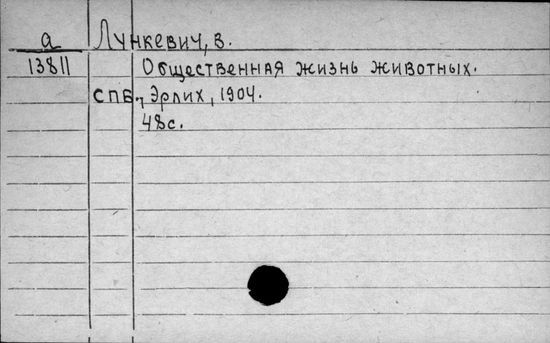 а Лункевич, В.
13811 Общественная жизнь животных.
СПБ., Эрлих, 1904.
48с.